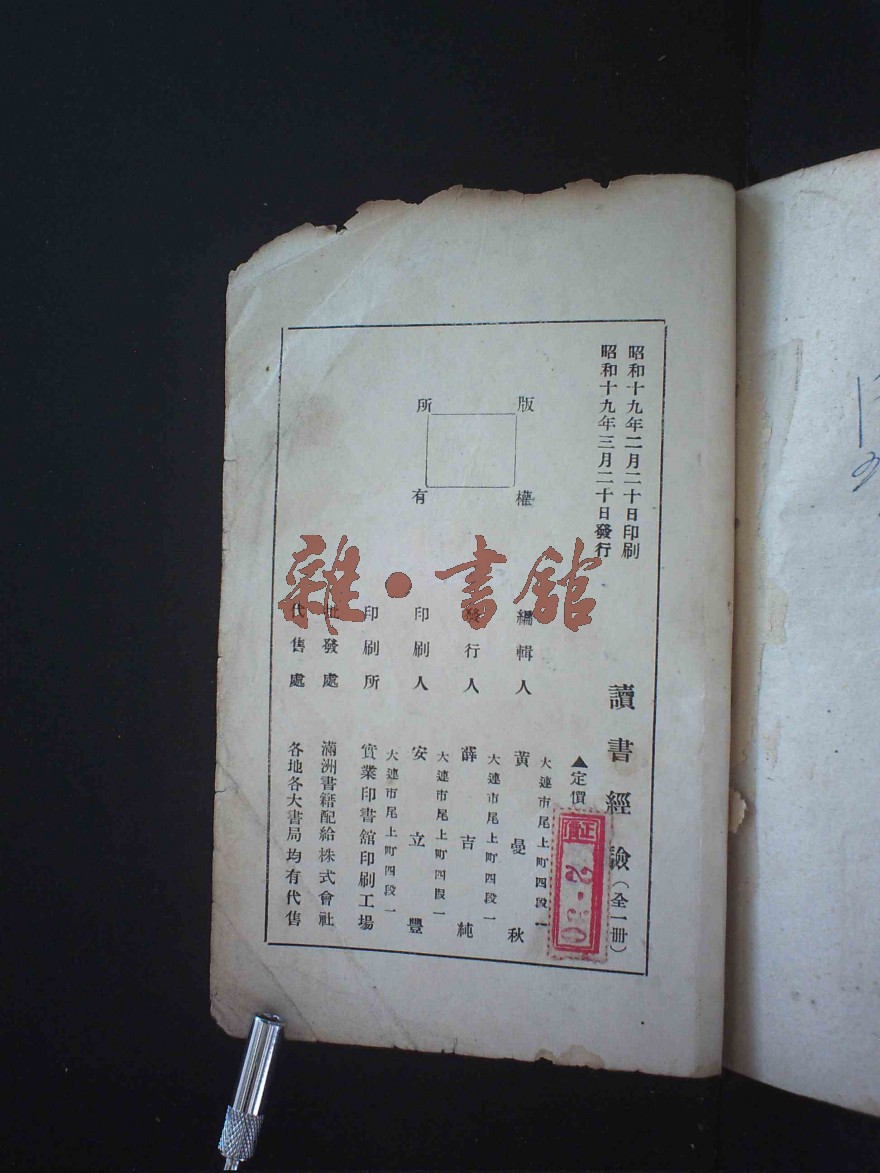 昭和十九年二月二十日印刷
昭和十九年三月二十日發行
版權所有
讀書經驗（全一冊）
▲定價
正價
2.30
大連市尾上町四段一
編輯人 黃曼秋
大連市尾上町四段一
發行人 薛吉純
大連市尾上町四段一
印刷人 安立豐
大連市尾上町四段一
印刷所 實業印書館印刷工場
批發處 滿洲書籍配給株式會社
代售處 各地各大書局均有代售
雜·書館